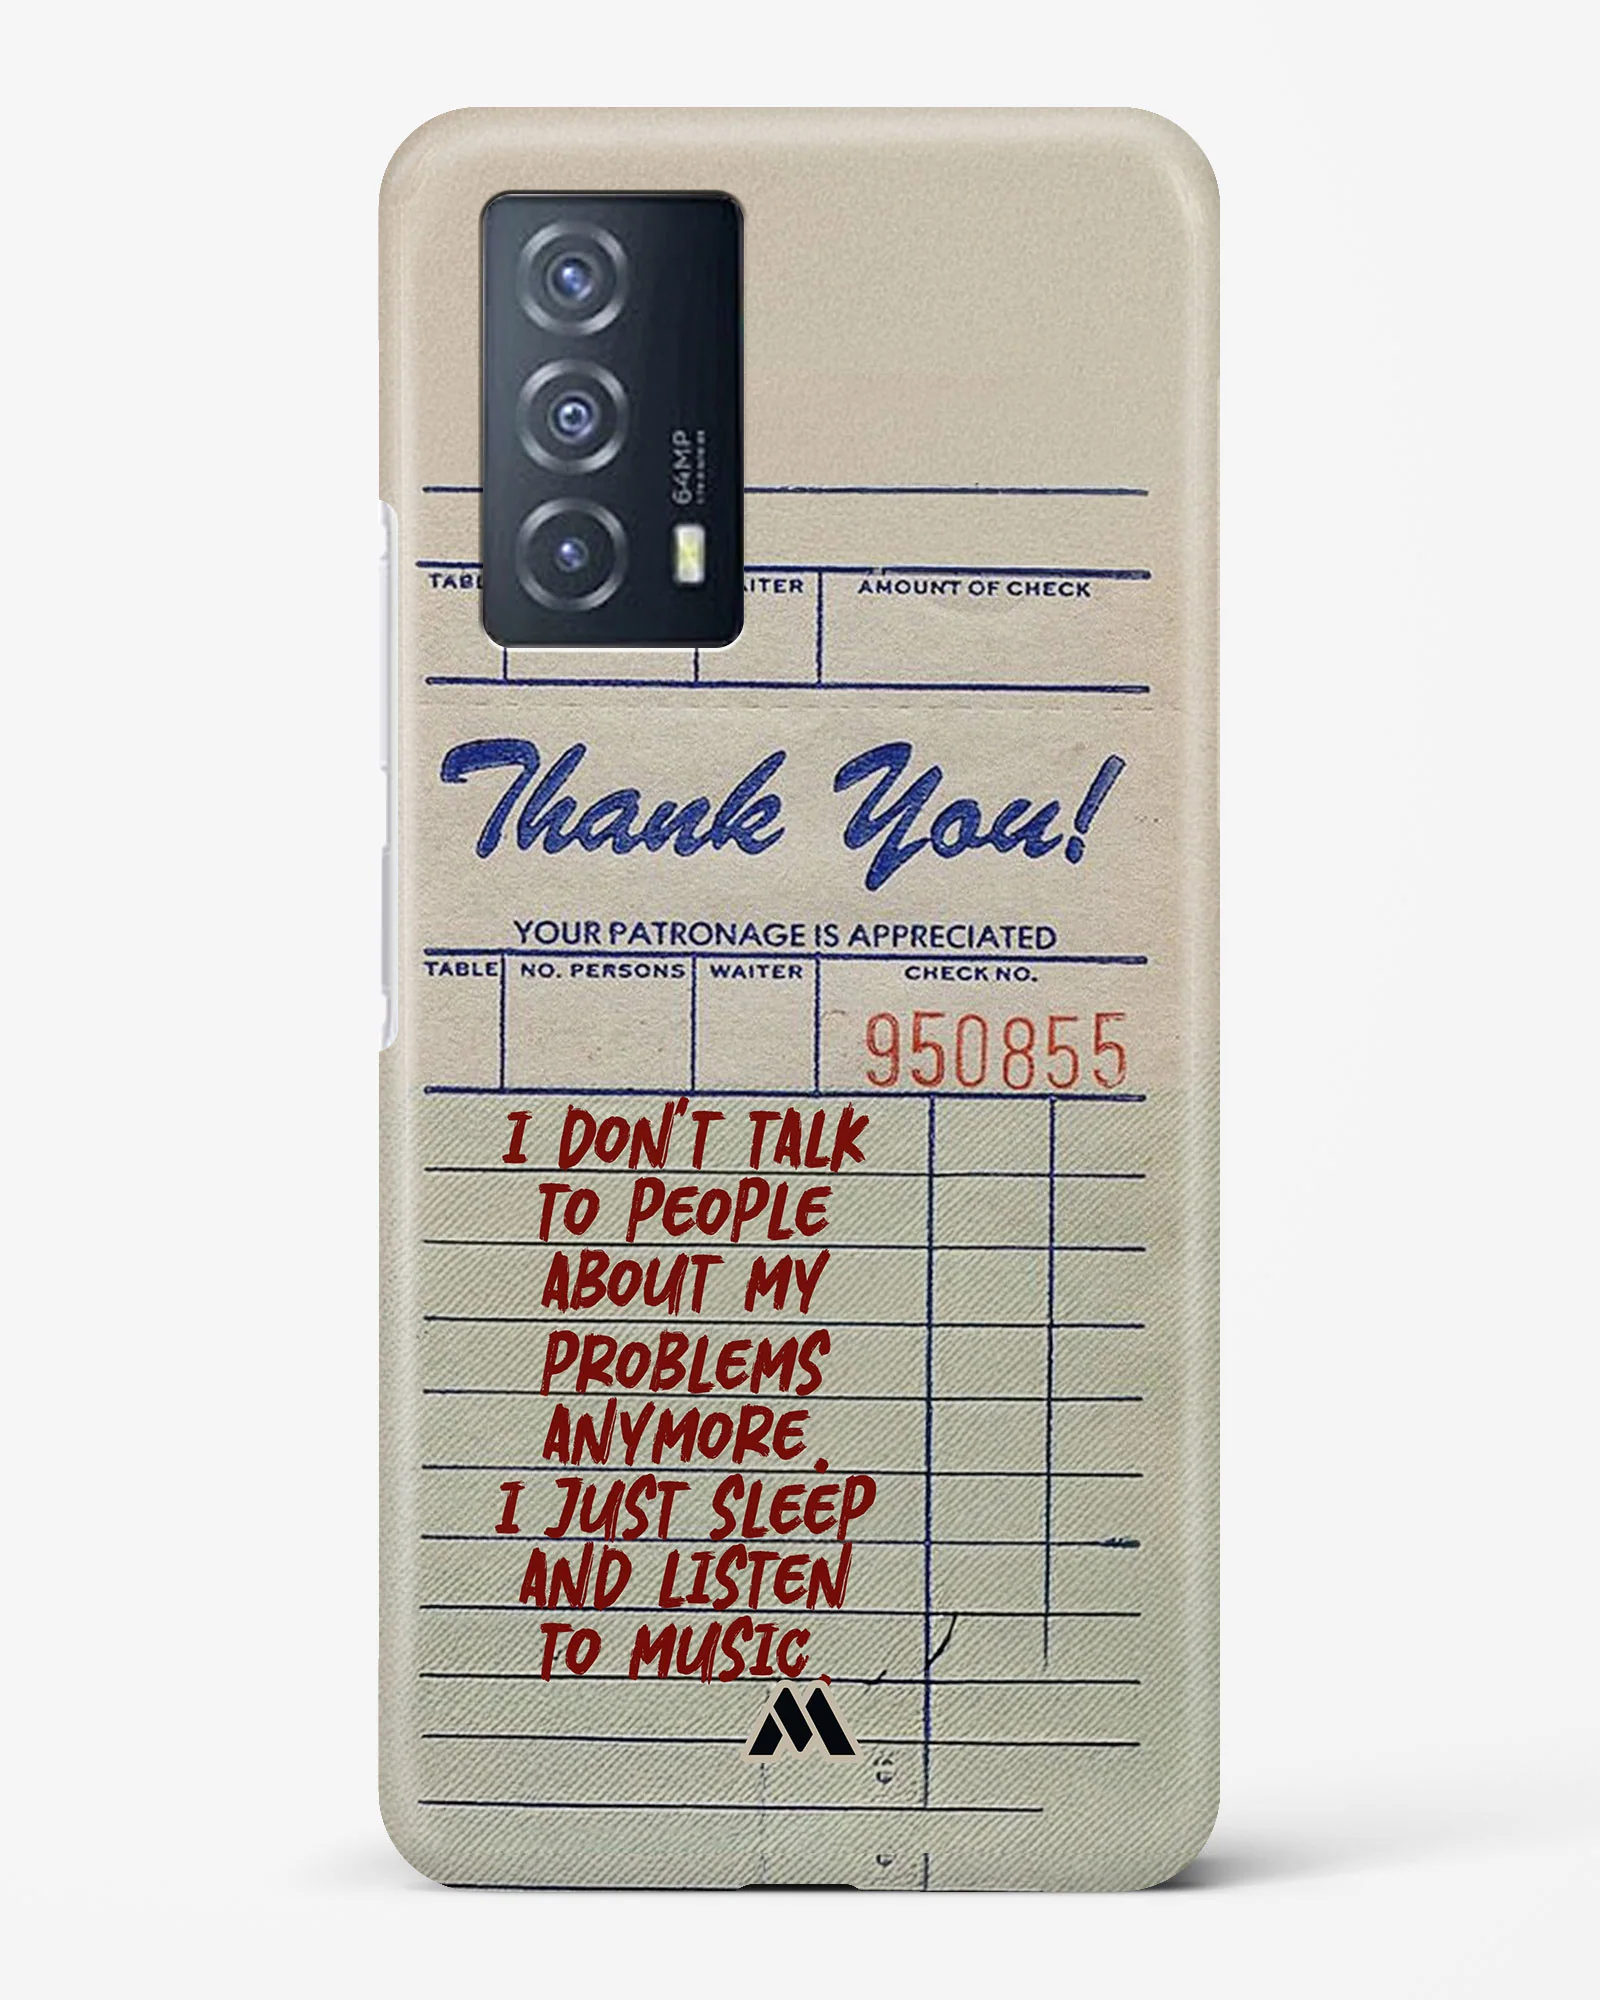 64MP
TABL
AITER
AMOUNT OF CHECK
Thank You!
YOUR PATRONAGE IS APPRECIATED
TABLE NO. PERSONS WAITER CHECK NO.
950855
I DON'T TALK
TO PEOPLE
ABOUT MY
PROBLEMS
ANYMORE.
I JUST SLEEP
AND LISTEN
TO MUSIC.